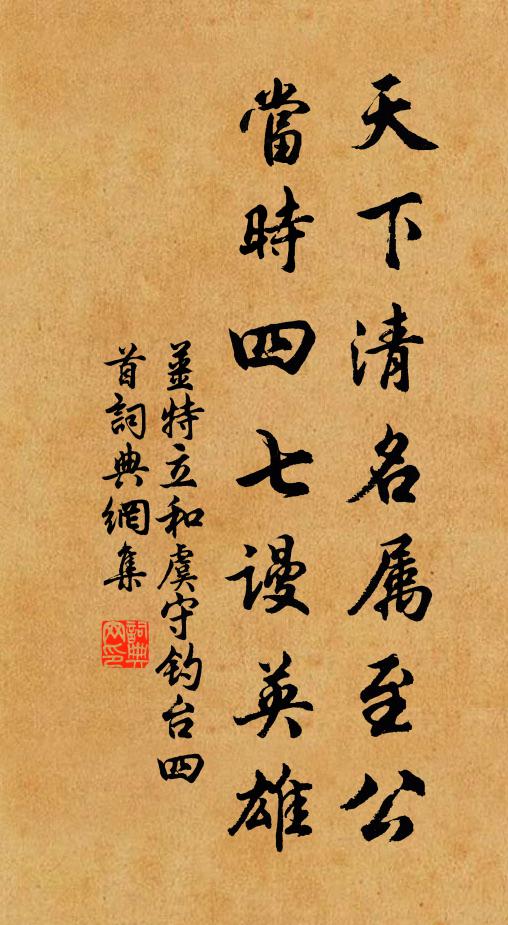 天下清名属至公
當時四七謾英雄
姜特立和虞守钓台四
首詞典網集
詞典網印